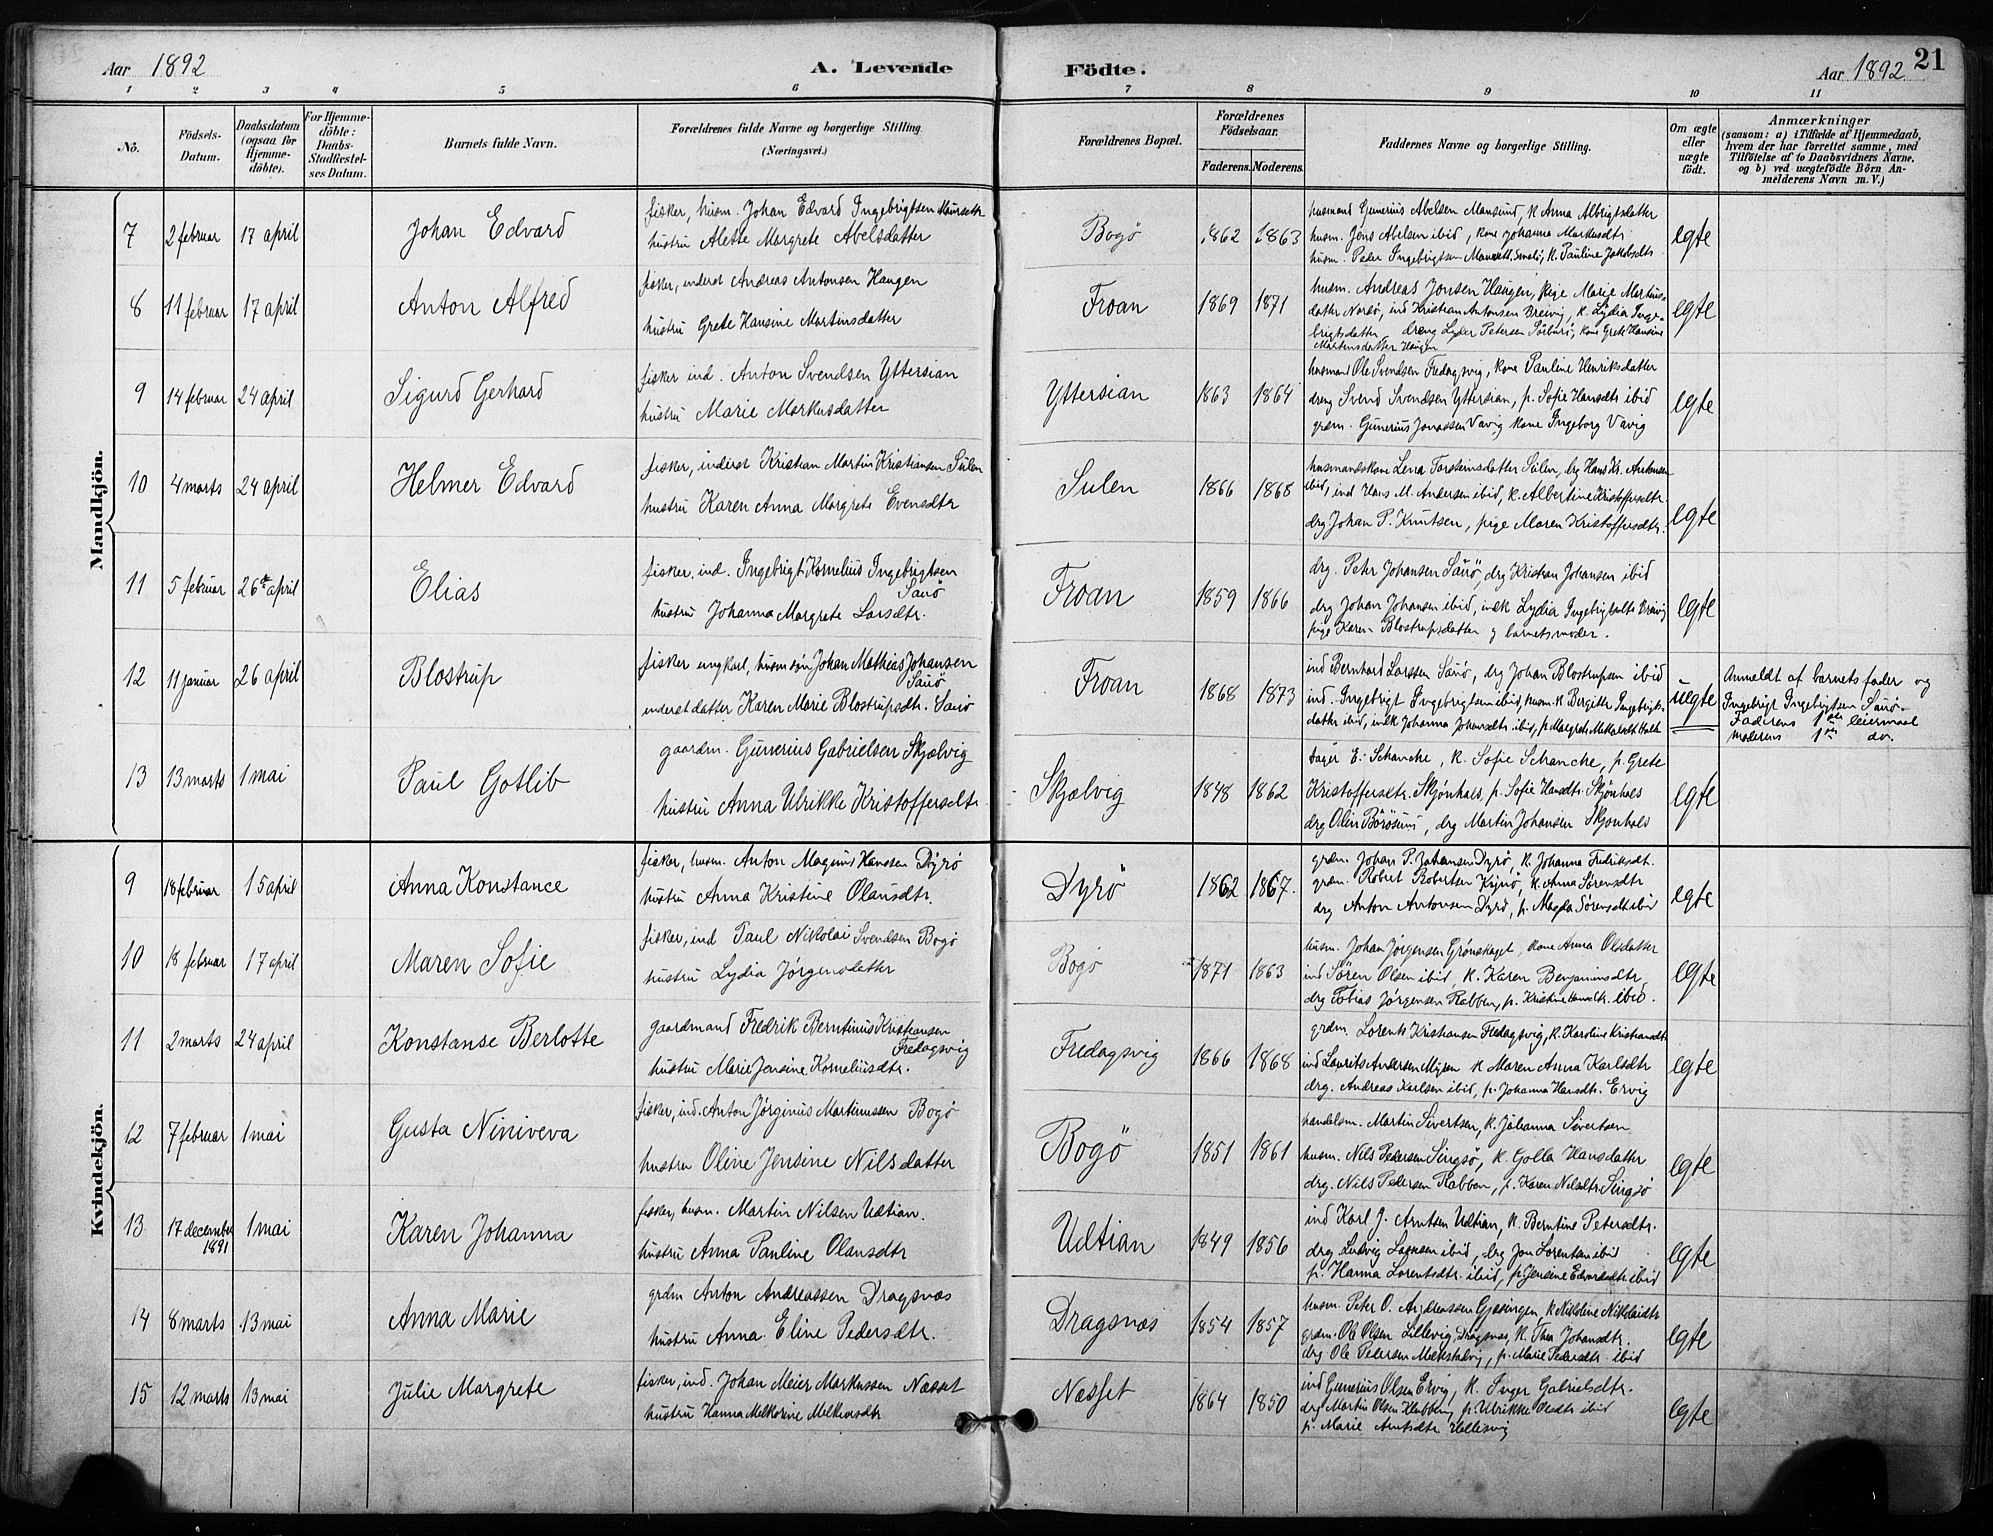 Aar 1892
A. Levende
Födte.
Aar 1892
21
1 2 3 4 5 6 7 8 9 10 11
No.
Födsels-Datum.
Daabsdatum (ogsaa for Hjemme-döbte).
For Hjemme-döbte: Daabs-Stadfæstel-ses Datum.
Barnets fulde Navn.
Forældrenes fulde Navne og borgerlige Stilling. (Næringsvei.)
Forældrenes Bopæl.
Forældrenes Födselsaar.
Faderens. Moderens.
Faddernes Navne og borgerlige Stilling.
Om ægte eller uægte födt.
Anmærkninger
(saasom: a) i Tilfælde af Hjemmedaab,
hvem der har forrettet samme, med
Tilföielse af to Daabsvidners Navne,
og b) ved uægtefödte Börn An-
melderens Navn m. V.)
Mandkjön.
7 2 februar 17 april Johan Edvard
fisker, husm. Johan Edvard Ingebrigtsen
hustru Alette Margrete Abelsdatter
Bogö 1862 1863
husmand Gunerius Abelsen Mansund, k Anna Albrigtsdatter
husm. Jens Abelsen ibid, kone Johanna Markusdtr
husm. Peder Ingebrigtsen k. Pauline Jakobsdtr
egte
8 11 februar 17 april Anton Alfred
fisker, inderst Andreas Antonsen Haugen
hustru Grete Hansine Martinsdatter
Froan 1869 1871
husm. Andreas Jonsen Haugen, pige Marie Martins-
datter Nordö, ind Kristian Antonsen Breivig, k. Lydia Inge-
brigtsdatter, dreng Petersen kone Grete Hansine
Martinsdatter Haugen
egte
9 14 februar 24 april Sigurd Gerhard
fisker ind. Anton Svendsen Yttersian
hustru Marie Markusdatter
Yttersian 1863 1864
husmand Ole Svendsen Fredagsvig, kone Pauline Henriksdatter
dreng Svend Svendsen Yttersian, p. Sofie Hansdtr ibid
grdm. Gunerius Jonassen Vavig kone Ingeborg Vavig
egte
10 4 marts 24 april Helmer Edvard
fisker, inderst Kristian Martin Kristiansen Sulen
hustru Karen Anna Margrete Evensdtr
Sulen 1866 1868
husmandskone Lena Torsteinsdatter Sulen, drg Hans Kr. Antonsen
ibid, ind Hans M. Andersen ibid, k. Albertine Kristoffersdtr.
drg Johan P. Knutsen, pige Maren Kristoffersdtr.
egte
11 5 februar 26de april Elias
fisker. ind. Ingebrigt Kornelius Ingebrigtsen
Saurö
hustru Johanna Margrete Larsdtr.
Froan 1859 1866
drg. Petr Johansen Saurö, drg Kristian Johansen ibid
drg Johan Johansen ibid, indk Lydia Ingebrigtsdtr Breivig
pige Karen Blostrupsdatter og barnets moder.
egte
12 11 januar 26 april Blostrup
fisker ungkarl, husm søn Johan Mathias Johansen
Saurö
inderst datter Karen Marie Blostrupsdtr. Saurö
Froan 1868 1873
ind Bernhard Larssen Saurö, drg Johan Blostrupsen ibid
ind. Ingebrigt Ingebrigtsen ibid, husm. k. Bergitte Ingebrigts-
datter ibid, indk Johanna Johansdtr ibid, p. Margrete
uegte
Anmeldt af barnets fader og
Ingebrigt Ingebrigtsen Saurö.
Faderens 1ste leiermaal
moderens 1ste do.
13 13 marts 1 mai Paul Gotlib
gaardm. Gunerius Gabrielsen Skjælvig
hustru Anna Ulrikke Kristoffersdtr
Skjælvig 1848 1862
E. Schancke, k. Sofie Schancke, p. Grete
Kristoffersdtr. Skjønhals, p. Sofie Hansdtr. Skjønhals
drg Olin Börösund, drg Martin Johansen Skjønhals
egte
Kvindekjön.
9 18 februar 15 april Anna Konstance
fisker, husm. Anton Magnus Hanssen Dyrö
hustru Anna Kristine Olausdtr.
Dyrö 1862 1867.
grdm. Johan P. Johansen Dyrö, k. Johanna Fredriksdtr.
grdm. Robret Robertsen k. Anna Sörensdtr
drg Anton Antonsen Dyrö, p. Magda Sörensdtr ibid
egte
10 18 februar 17 april Maren Sofie
fisker, ind Paul Nikolai Svendsen Bogö
hustru Lydia Jørgensdatter
Bogö 1871 1863
husm. Johan Jørgensen Grönskaget, kone Anna Olsdatter
ind Sören Olsen ibid, k. Karen Benjaminsdtr
drg Tobias Jørgensen Rabben, p. Kristine Hansdtr. ibid.
egte
11 2 marts 24 april Konstanse Berlotte
gaardmand Fredrik Berntinus Kristiansen
Fredagsvig
hustru Marie Jensine Korneliusdtr.
Fredagsvig 1866 1868
grdm. Lorents Kristiansen Fredagsvig, k. Karoline Kristiansdtr
ind Laurits Andersen Myren k Maren Anna Karlsdtr
drg. Andreas Karlsen ibid, p. Johanna Hansdtr. Ervig
egte
12 7 februar 1 mai Gusta Niniveva
fisker, ind. Anton Jørginus Martinussen Bogö
hustru Oline Jensine Nilsdatter
Bogö 1851 1861
handelsm. Martin Sivertsen, k. Johanna Sivertsen
husm. Nils Pedersen Singsö, k Golla Hansdatter
drg. Nils Pedersen Rabben, p. Karen Nilsdtr. Singsö
egte
13 17 december 1891 1 mai Karen Johanna
fisker, husm. Martin Nilsen Udtian.
hustru Anna Pauline Olausdtr
Udtian 1849 1856
ind Karl J. Arntsen Udtian, k. Berntine Petersdtr.
drg Ludvig Larsen ibid, drg Jon Lorentsen ibid
p. Hanna Lorentsdtr. ibid, p. Jensine Edvardsdtr ibid
egte
14 8 marts 13 mai Anna Marie
grdm Anton Andreassen Dragsnæs
hustru Anna Eline Pedersdtr.
Dragsnæs 1854 1857
husm. Peter O. Andreassen Gjæsingen, k Nikoline Nikolaidtr
grdm. Ole Olsen Lillevig, Dragsnæs, k. Thea Johansdtr.
drg Ole Petersen p. Marie Pedersdtr. ibid
egte
15 12 marts 13 mai Julie Margrete
fisker, ind. Johan Meier Markussen Næsset
hustru Hanna Melkorine Melkersdtr
Næsset 1864 1850
ind Gunerius Olsen Ervig, k. Inger Gabrielsdtr.
drg Martin Olsen Klubben, p. Ulrikke Olsdtr ibid
p. Marie Arntsdtr. Hellesvig
egte